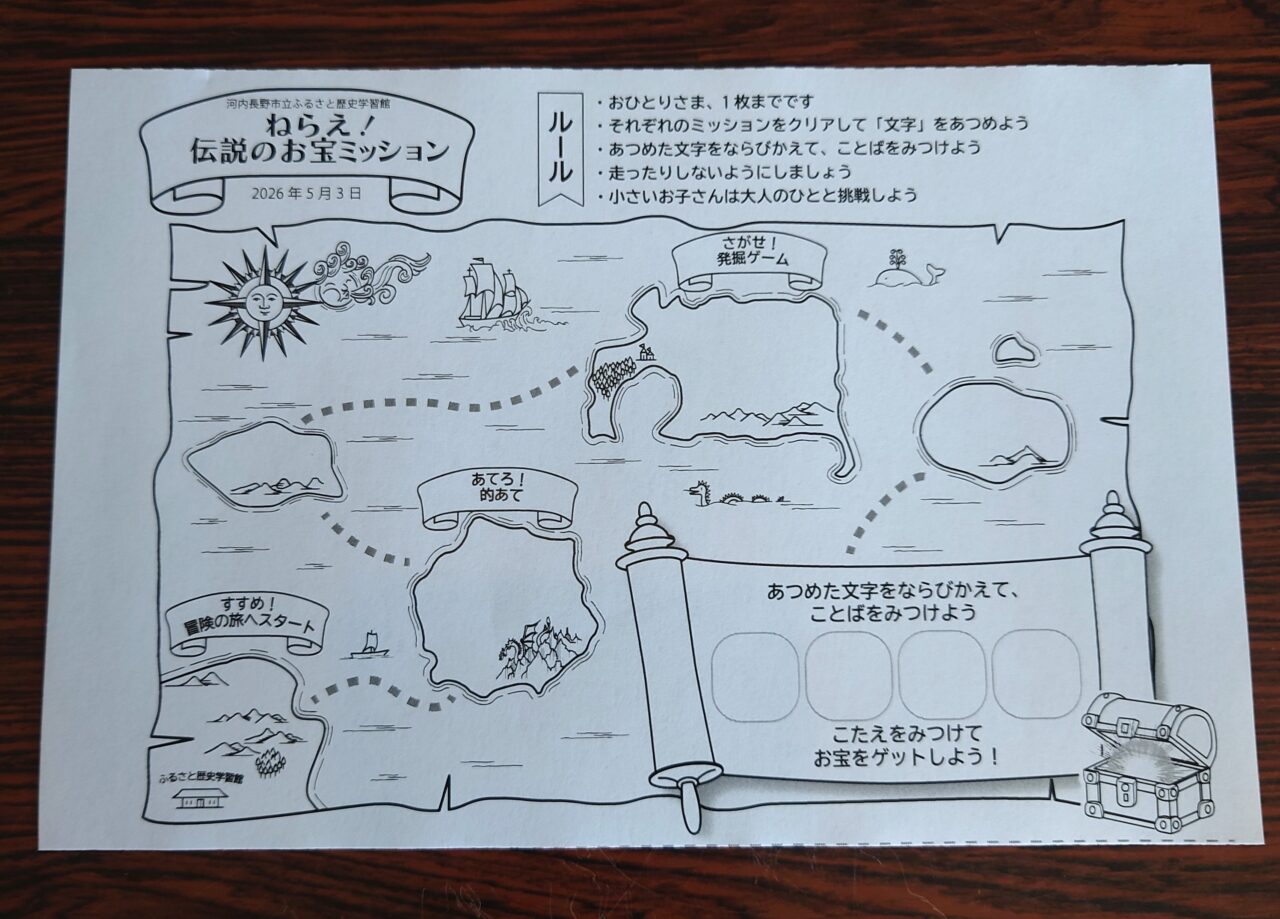 河内長野市立ふるさと歴史学習館
ねらえ!
伝説のお宝ミッション
2026年5月3日
ルール
・おひとりさま、1枚までです
・それぞれのミッションをクリアして「文字」をあつめよう
・あつめた文字をならびかえて、ことばをみつけよう
・走ったりしないようにしましょう
・小さいお子さんは大人のひとと挑戦しよう
さがせ!
発掘ゲーム
あてろ!
的あて
すすめ!
冒険の旅へスタート
ふるさと歴史学習館
あつめた文字をならびかえて、
ことばをみつけよう
こたえをみつけて
お宝をゲットしよう!